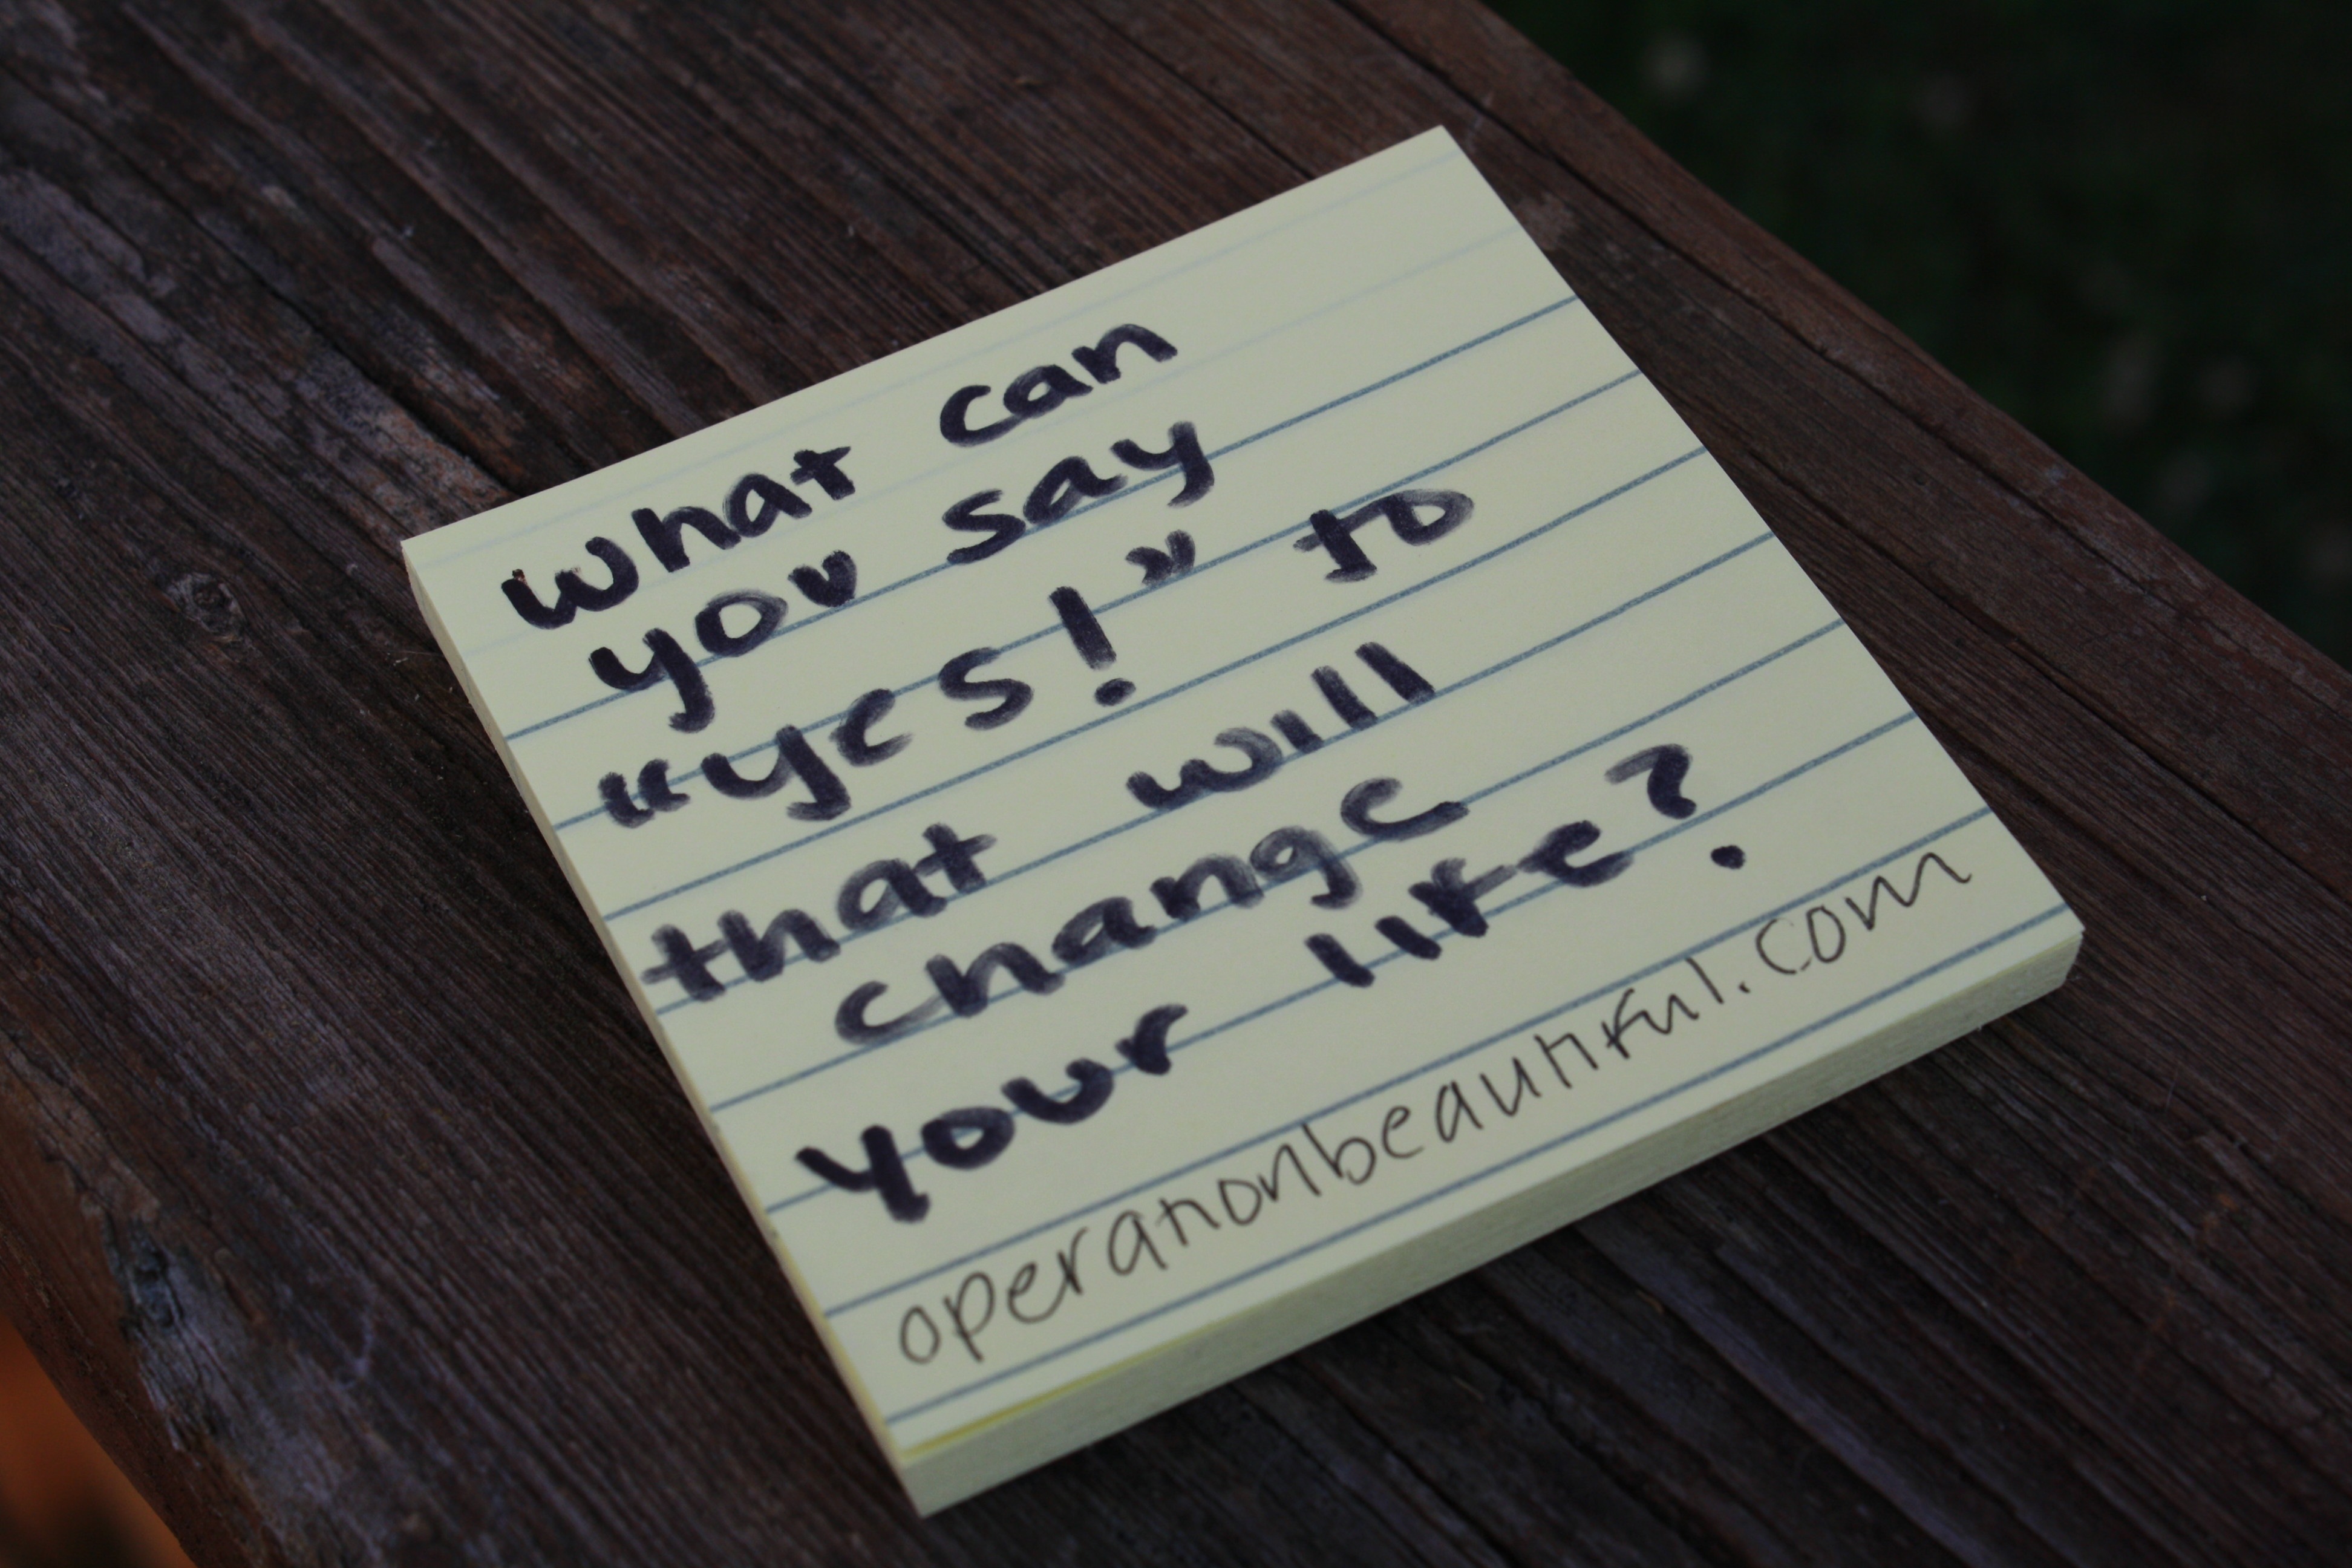 what can
you say
“yes!” to
that will
change
your life?
operationbeautiful.com